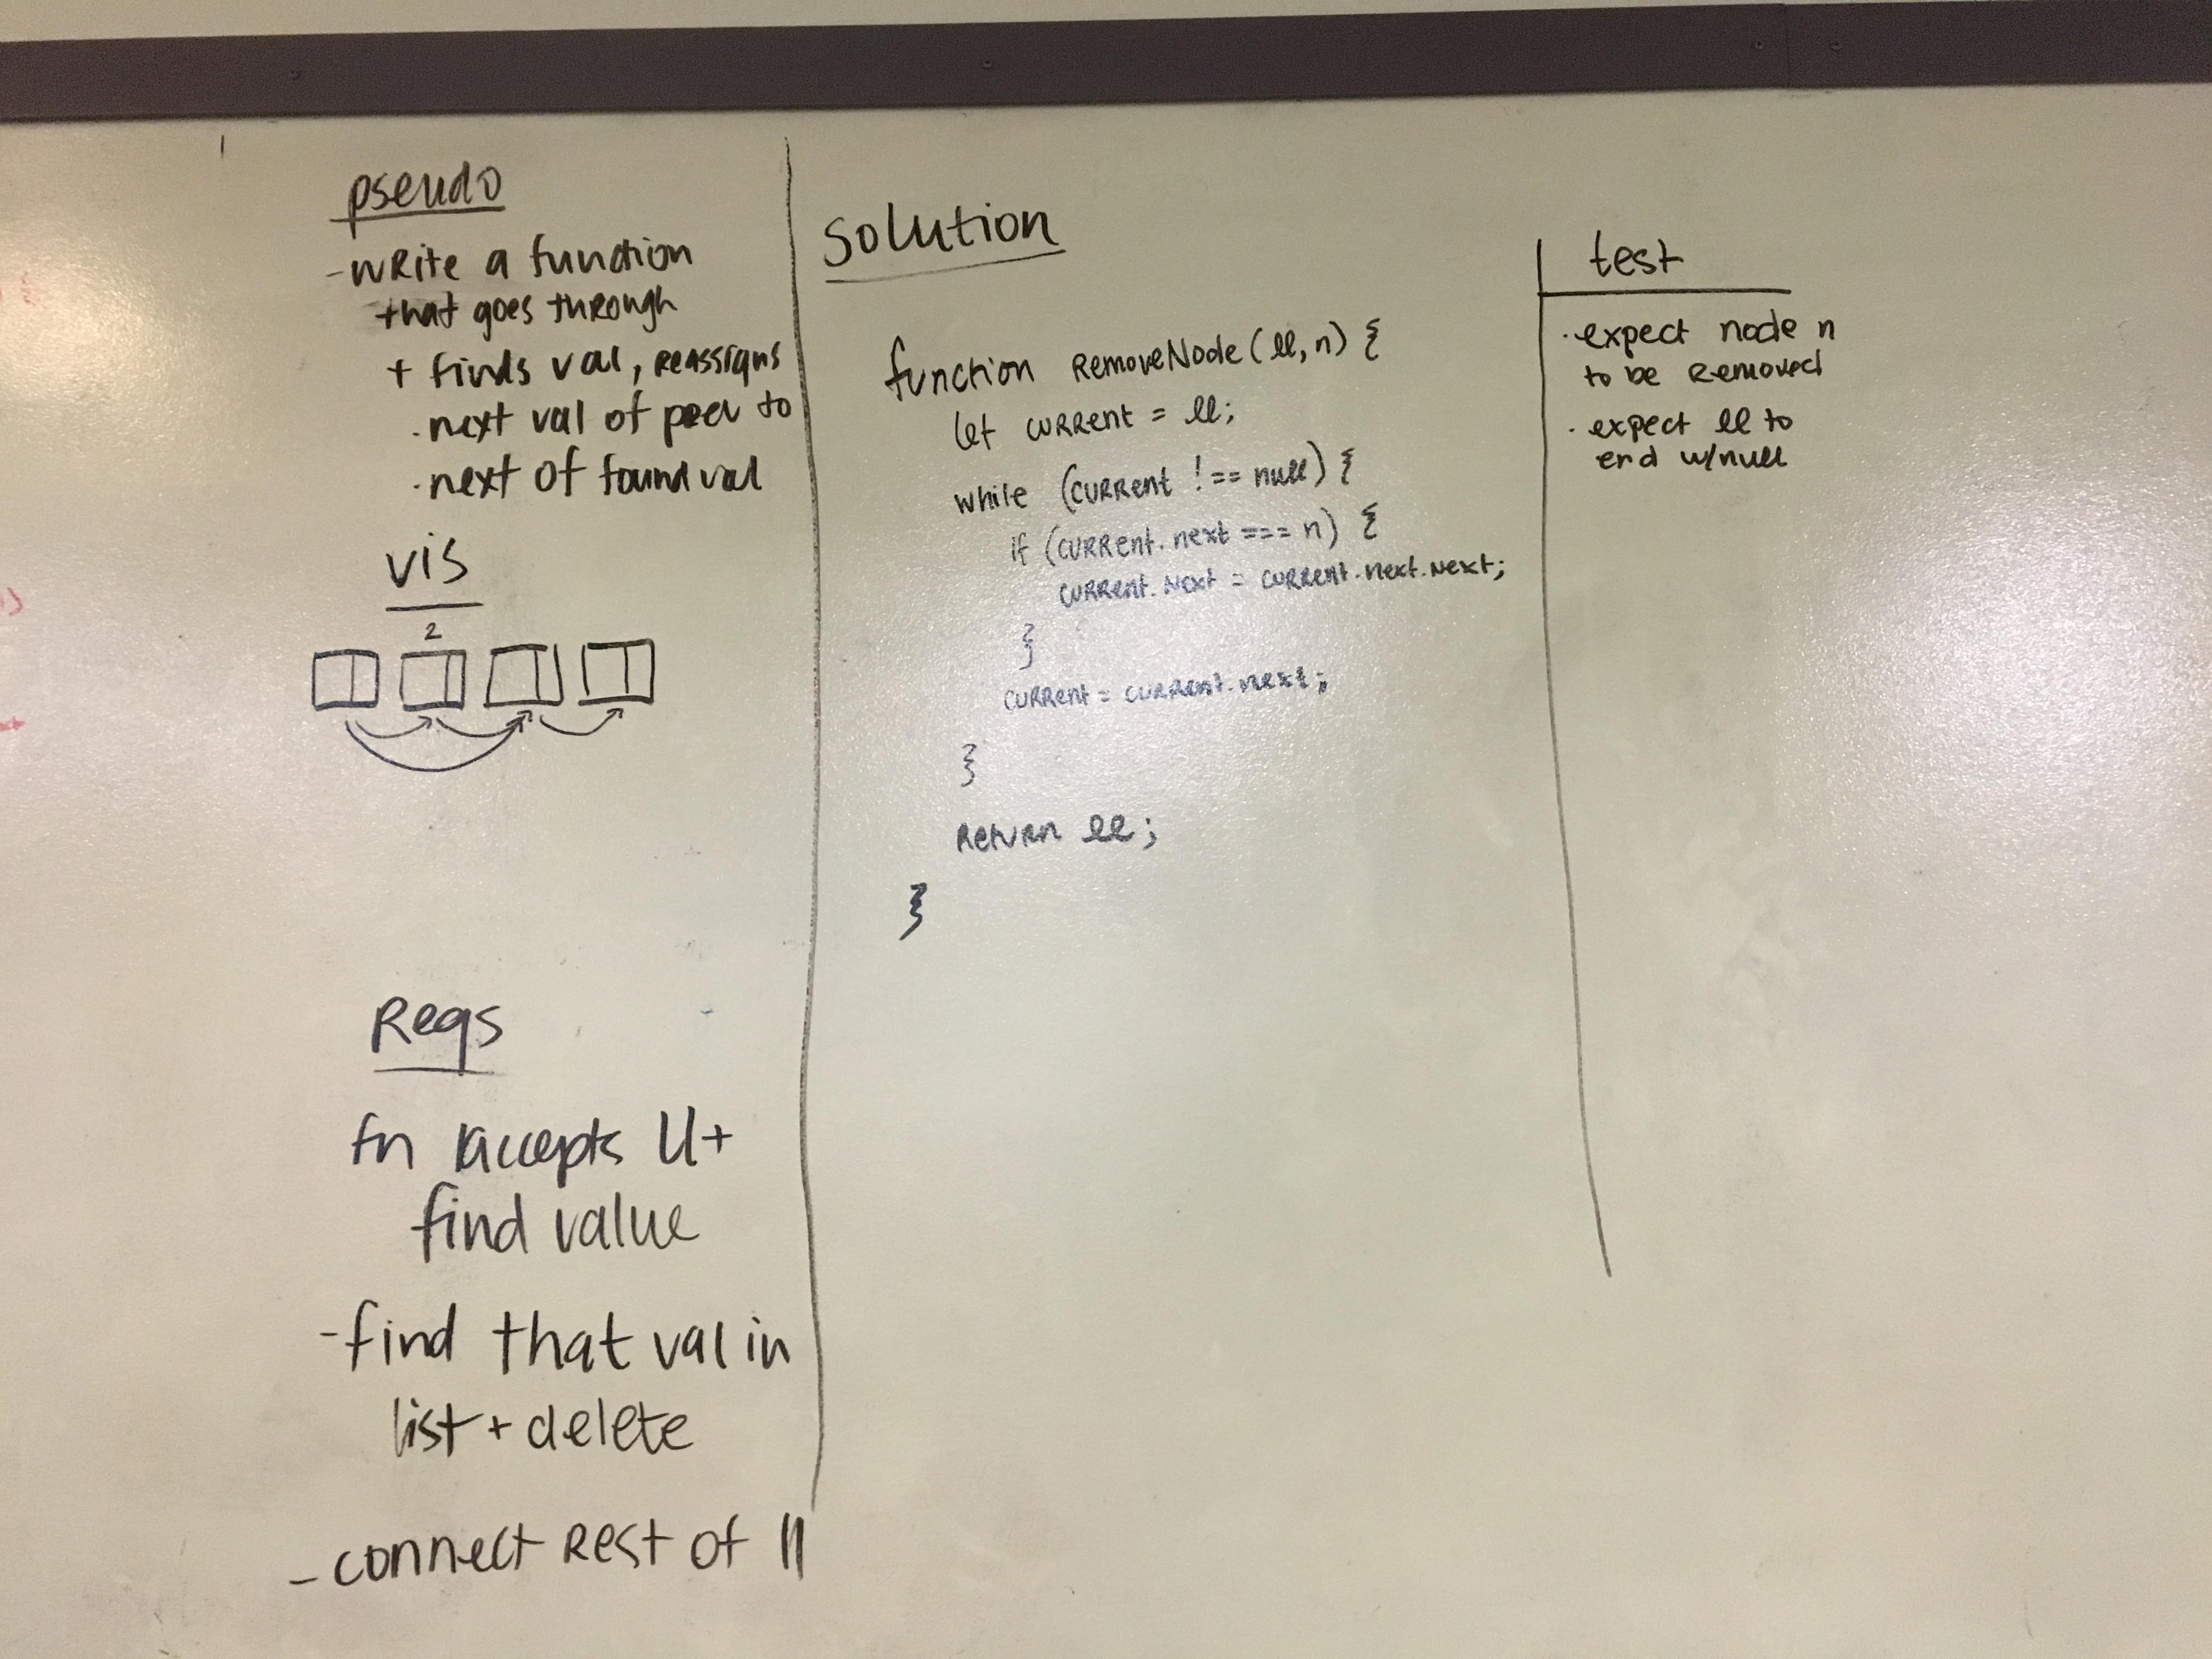 pseudo
- write a function
that goes through
+ finds val, reassigns
. next val of prev to
. next of found val
vis
2
Reqs
fn accepts ll +
find value
- find that val in
list + delete
- connect Rest of ll
Solution
function RemoveNode(ll, n) {
let current = ll;
while (current !== null) {
if (current.next === n) {
current.next = current.next.next;
}
current = current.next;
}
Return ll;
}
test
· expect node n
to be removed
· expect ll to
end w/null